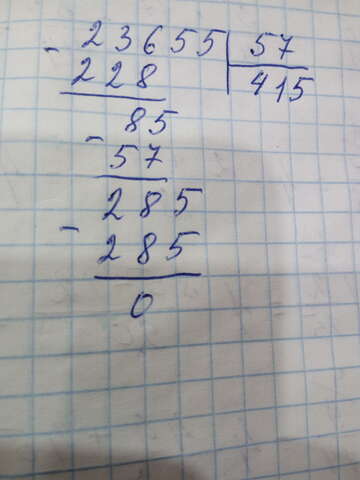 - 23655 | 57
228 415
85
- 57
285
- 285
0